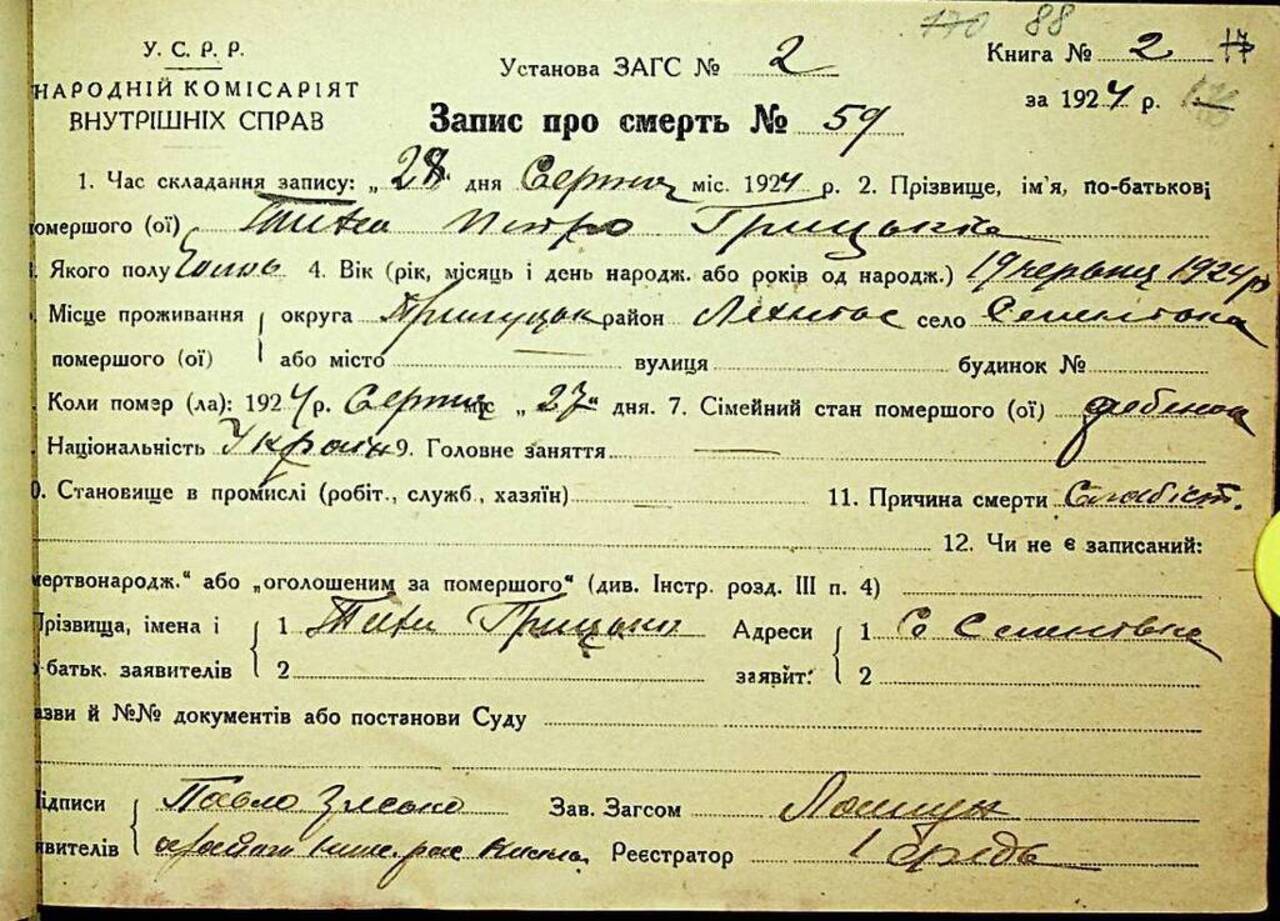 170 88
У. С. Р. Р.
НАРОДНІЙ КОМІСАРІЯТ
ВНУТРІШНІХ СПРАВ
Установа ЗАГС № 2
Книга № 2 17
за 1924 р.
Запис про смерть № 59
1. Час складання запису: „ 28 “ дня Серпня міс. 1924 р. 2. Прізвище, ім'я, по-батькові
помершого (ої) Петро Грицька
Якого полу 4. Вік (рік, місяць і день народж. або років од народж.) 19 червня 1924 р
Місце проживання округа Прилуцьк район село
помершого (ої) або місто вулиця будинок №
Коли помер (ла): 1924 р. Серпня міс „ 27 “ дня. 7. Сімейний стан помершого (ої)
Національність Україн 9. Головне заняття
0. Становище в промислі (робіт., служб., хазяїн) 11. Причина смерти Слабіст.
12. Чи не є записаний:
мертвонародж.“ або „оголошеним за помершого“ (див. Інстр. розд. III п. 4)
Прізвища, імена і 1 Грицько Адреси 1 С
батьк. заявителів 2 заявит. 2
азви й №№ документів або постанови Суду
ідписи Павло Зав. Загсом
явителів Реєстратор